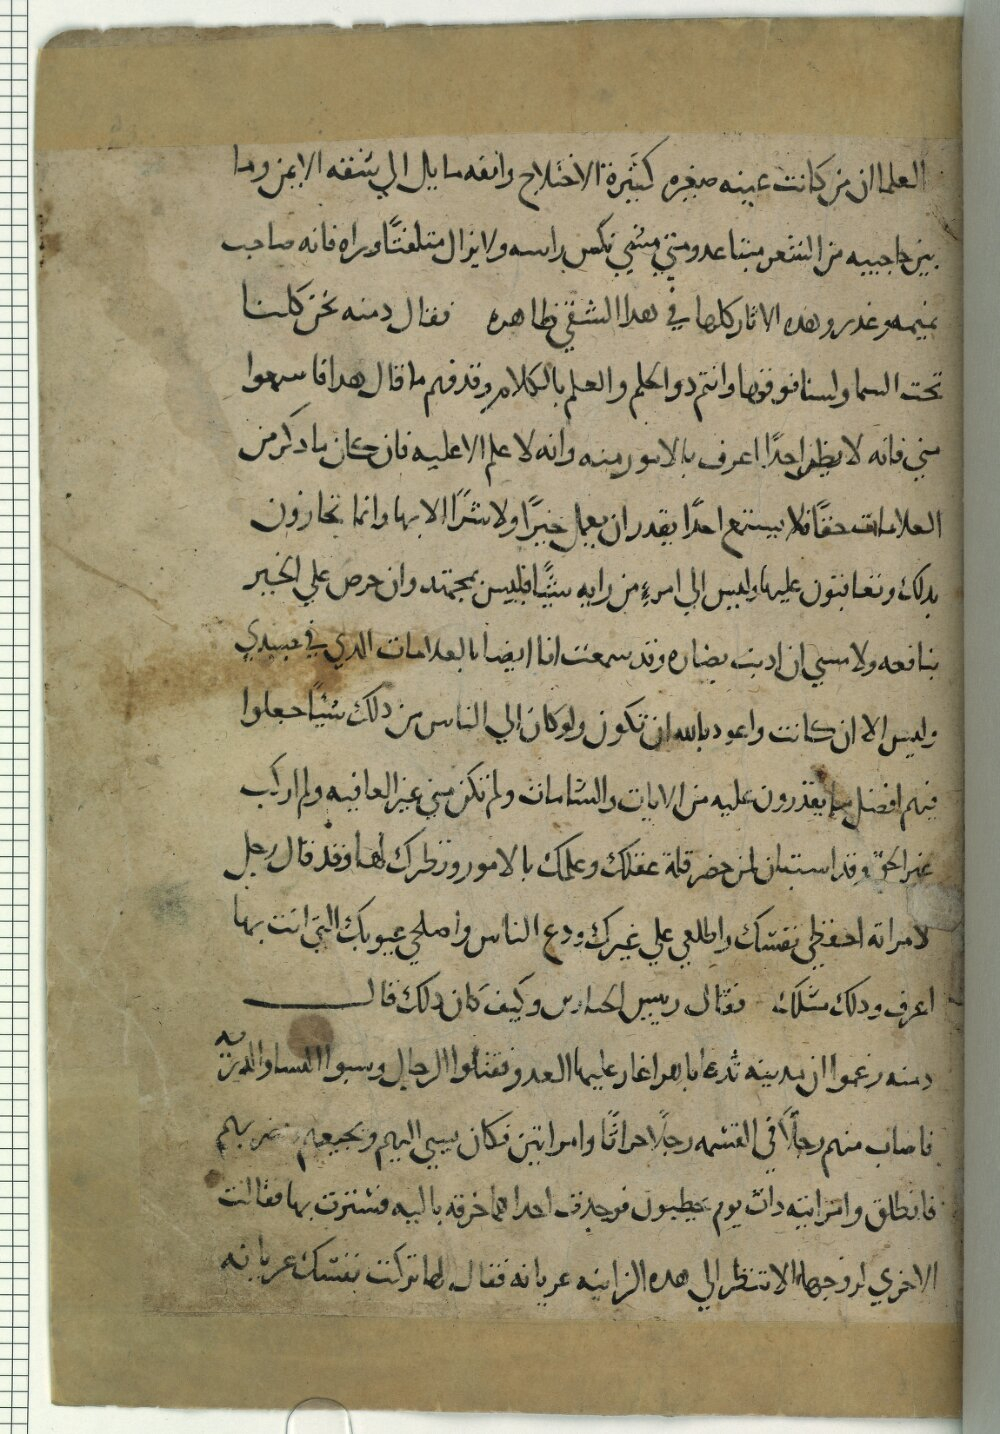 العلما ان من كانت عينه صغيره كثيرة الاختلاج وانفه مايل الي شقه الايمن وما
بين حاجبيه من الشعر متباعد ومتي مشي نكس براسه ولا يزال متلفتًا وراه فانه صاحب
نميمه وغدر وهده الاثار كلها في هدا الشقي ظاهره فقال دمنه نحن كلنا
تحت السما ولسنا فوقها وانتم دوا الحلم والعلم بالكلام وقد فهم ما قال هدا فاسمعوا
مني فانه لا يظن احدًا اعرف بالامور منه وانه لا علم الا عليه فان كان ما دكر من
العلامات حقًا فلا يستمع احدًا يقدر ان يعمل خيرًا ولا شرًا الا بها وانما تجازون
بدلك وتعاقبون عليها وليس الي امرءٍ من رايه شيًا فليس بمجتهد وان حرص علي الخير
بنافعه ولا مسي ان ادنب بضاره وقد سمعت انا ايضا بالعلامات الدي في جسدي
وليس الا ان كانت واعود بالله ان تكون ولو كان الي الناس من دلك شيًا جعلوا
فيهم افضل ما يقدرون عليه من الايات والشامات ولم تكن مني غير العافيه ولم اركب
غير الحق وقد استبان لمن حضر قلة عقلك وعلمك بالامور ونظرك لها وقد قال رجل
لامراته احفظي نفسك واطلعي علي غيرك ودع الناس واصلحي عيوبك التي انت بها
اعرف ودلك مثلك فقال رييس الحدارس وكيف كان دلك قال
دمنه زعموا ان مدينه تدعا اغار عليها العدو فقتلوا الرجال وسبوا النسا والدريه
فاصاب منهم رجلًا في القسمه رجلًا حراثًا وامراتين فكان يسي اليهم ويجيعهم
فانطلق وامراتيه دات يوم يحطبون فوجدت احداهما خرقه باليه فتسترت بها فقالت
الاخري لزوجها الا تنظر الي هده الزانيه عريانه فقال لها تركت نفسك عريانه